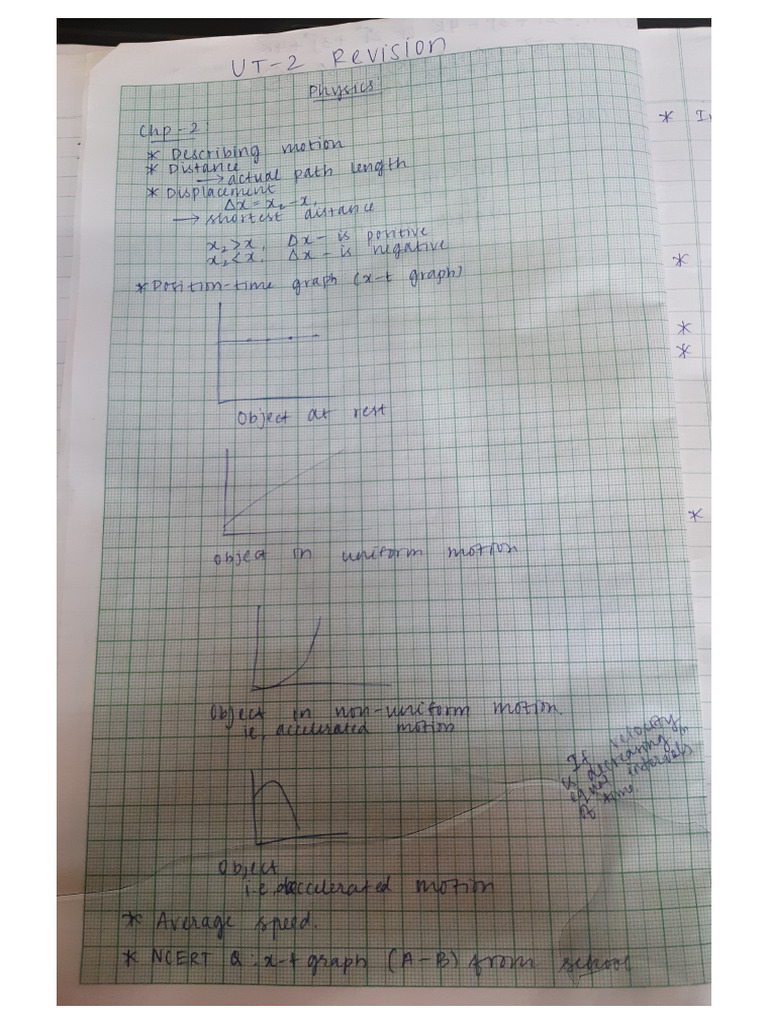 UT-2 Revision
Physics
Chp-2:
* Describing motion
* Distance
→ actual path length
* Displacement
Δx = x₂ - x₁
→ shortest distance
x₂ > x₁ Δx - is positive
x₂ < x₁ Δx - is negative
* Position-time graph (x-t graph)
Object at rest
Object in uniform motion
Object in non-uniform motion
ie, accelerated motion
If velocity
is decreasing in
equal intervals
of time.
Object
i.e. deaccelerated motion
* Average speed.
* NCERT Q: x-t graph (A-B) from school
* I
*
*
*
*